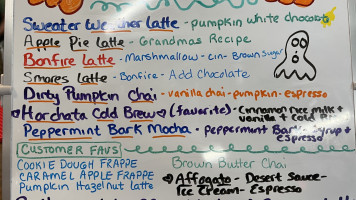 Sweater Weather Latte - pumpkin white chocolate
Apple Pie latte - Grandmas Recipe
Bonfire Latte - Marshmallow - Cin - Brown Sugar
Smores Latte - Bonfire - Add Chocolate
Dirty Pumpkin Chai - vanilla chai - pumpkin - espresso
Horchata Cold Brew (favorite) - Cinnamon rice milk +
vanilla + Cold
Peppermint Bark Mocha - peppermint Bark Syrup +
espresso
CUSTOMER FAVS
COOKIE DOUGH FRAPPE
CARAMEL APPLE FRAPPE
Pumpkin Hazelnut latte
Brown Butter Chai
Affogato - Desert Sauce -
Ice Cream - Espresso